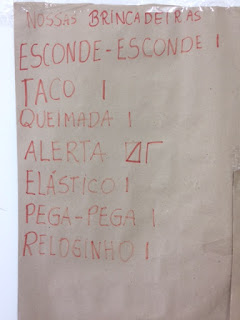 NOSSAS BRINCADEIRAS
ESCONDE-ESCONDE I
TACO I
QUEIMADA I
ALERTA
ELÁSTICO I
PEGA-PEGA I
RELOGINHO I